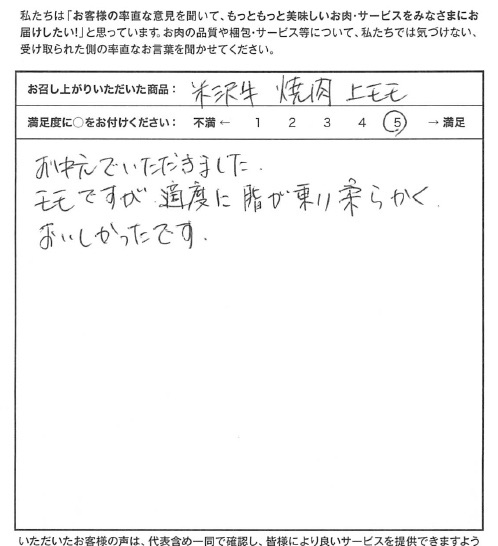 私たちは「お客様の率直な意見を聞いて、もっともっと美味しいお肉・サービスをみなさまにお
届けしたい!」と思っています。お肉の品質や梱包・サービス等について、私たちでは気づけない、
受け取られた側の率直なお言葉を聞かせてください。
お召し上がりいただいた商品: 米沢牛 焼肉 上モモ
満足度に○をお付けください: 不満 ← 1 2 3 4 5 → 満足
お中元でいただきました.
モモですが 適度に 脂が乗り 柔らかく.
おいしかったです.
いただいたお客様の声は、代表含め一同で確認し、皆様により良いサービスを提供できますよう